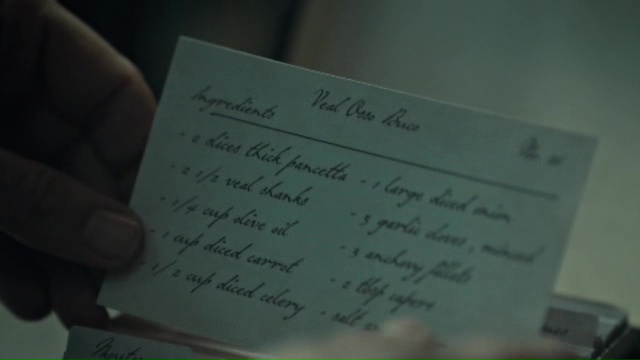 Veal Osso Buco
Ingredients
- 2 slices thick pancetta
- 2 1/2 veal shanks
- 1/4 cup olive oil
- 1 cup diced carrot
- 1/2 cup diced celery
- 1 large diced onion
- 3 garlic cloves, minced
- 3 anchovy fillets
- 2 tbsp capers
- salt